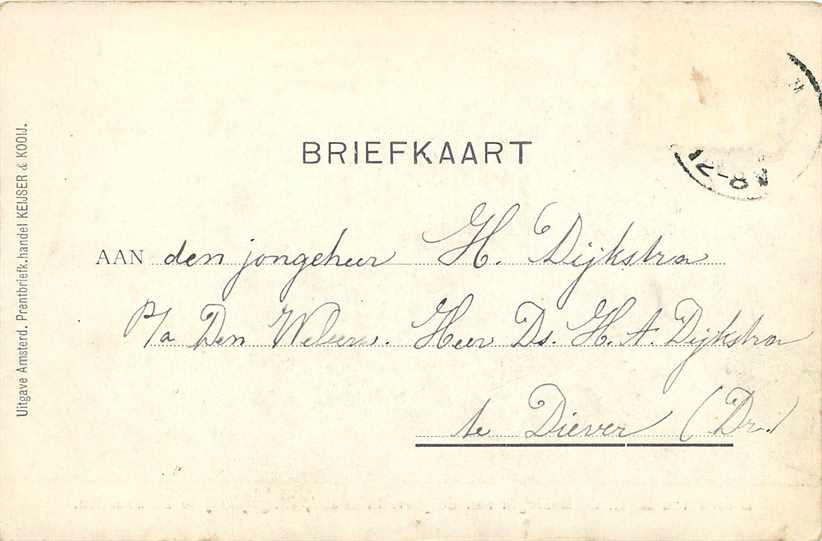 BRIEFKAART
12-8
AAN den jongeheer H. Dijkstra
P/a Den Weleerw. Heer Ds. H. A. Dijkstra
te Diever (Dr.)
Uitgave Amsterd. Prentbriefk.handel KEIJSER & KOOIJ.